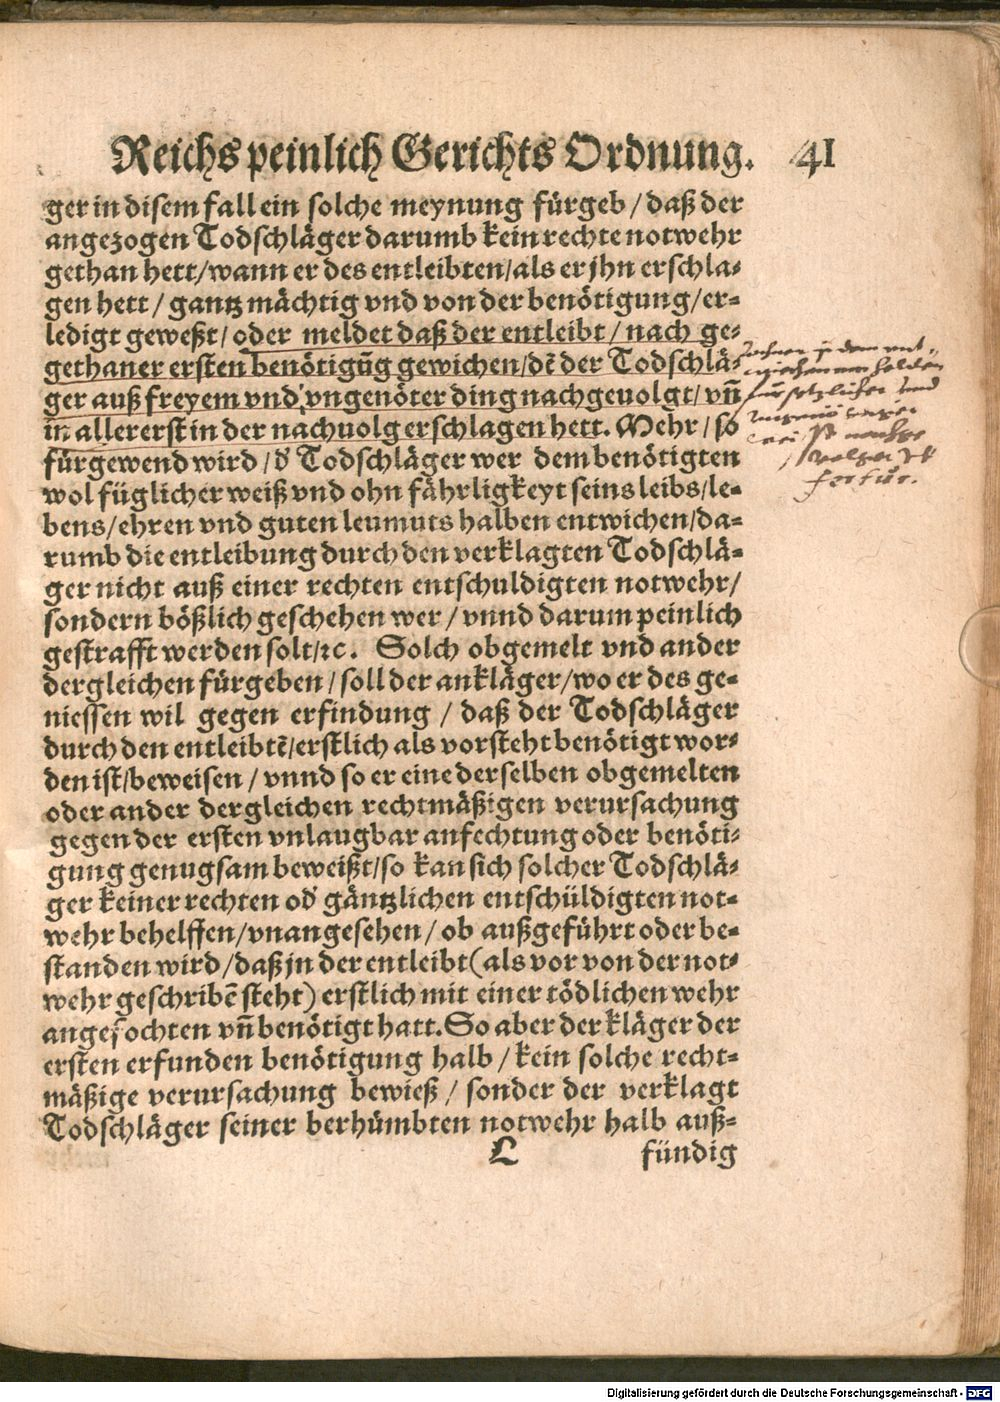 Reichs peinlich Gerichts Ordnung. 41
ger in disem fall ein solche meynung fürgeb / daß der
angezogen Todschläger darumb kein rechte notwehr
gethan hett/wann er des entleibten/als er jhn erschla⸗
gen hett / gantz mächtig vnd von der benötigung/er⸗
ledigt geweßt/ oder meldet daß der entleibt / nach ge⸗
gethaner ersten benötigūg gewichen/dē der Todschlä⸗
ger auß freyem vnd vngenöter ding nachgeuolgt/ vñ
in allererst in der nachuolg erschlagen hett. Mehr / so
fürgewend wird / d' Todschläger wer dem benötigten
wol füglicher weiß vnd ohn fährligkeyt seins leibs/le⸗
bens/ehren vnd guten leumuts halben entwichen/da⸗
rumb die entleibung durch den verklagten Todschlä⸗
ger nicht auß einer rechten entschuldigten notwehr/
sondern bößlich geschehen wer / vnnd darum peinlich
gestrafft werden solt/ꝛc. Solch obgemelt vnd ander
dergleichen fürgeben / soll der ankläger/wo er des ge⸗
niessen wil gegen erfindung / daß der Todschläger
durch den entleibtē/erstlich als vorsteht benötigt wor⸗
den ist/beweisen / vnnd so er eine derselben obgemelten
oder ander dergleichen rechtmäßigen verursachung
gegen der ersten vnlaugbar anfechtung oder benöti⸗
gung genugsam beweißt/so kan sich solcher Todschlä⸗
ger keiner rechten od' gäntzlichen entschüldigten not⸗
wehr behelffen/vnangesehen / ob außgeführt oder be⸗
standen wird/daß jn der entleibt(als vor von der not⸗
wehr geschribē steht) erstlich mit einer tödlichen wehr
angefochten vñ benötigt hatt. So aber der kläger der
ersten erfunden benötigung halb / kein solche recht⸗
mäßige verursachung bewieß / sonder der verklagt
Todschläger seiner berhümbten notwehr halb auß⸗
L fündig
Digitalisierung gefördert durch die Deutsche Forschungsgemeinschaft - DFG